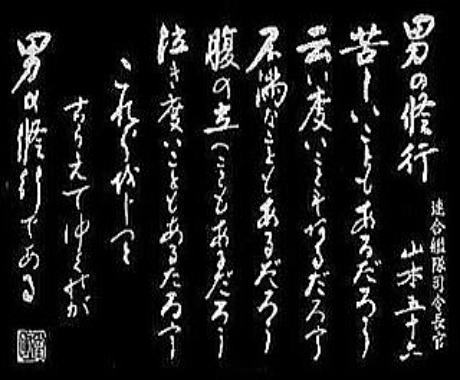 男の修行
連合艦隊司令長官
山本五十六
苦しいこともあるだろう
云い度いこともあるだろう
不満なこともあるだろう
腹の立つこともあるだろう
泣き度いこともあるだろう
これらをじっと
こらえてゆくのが
男の修行である